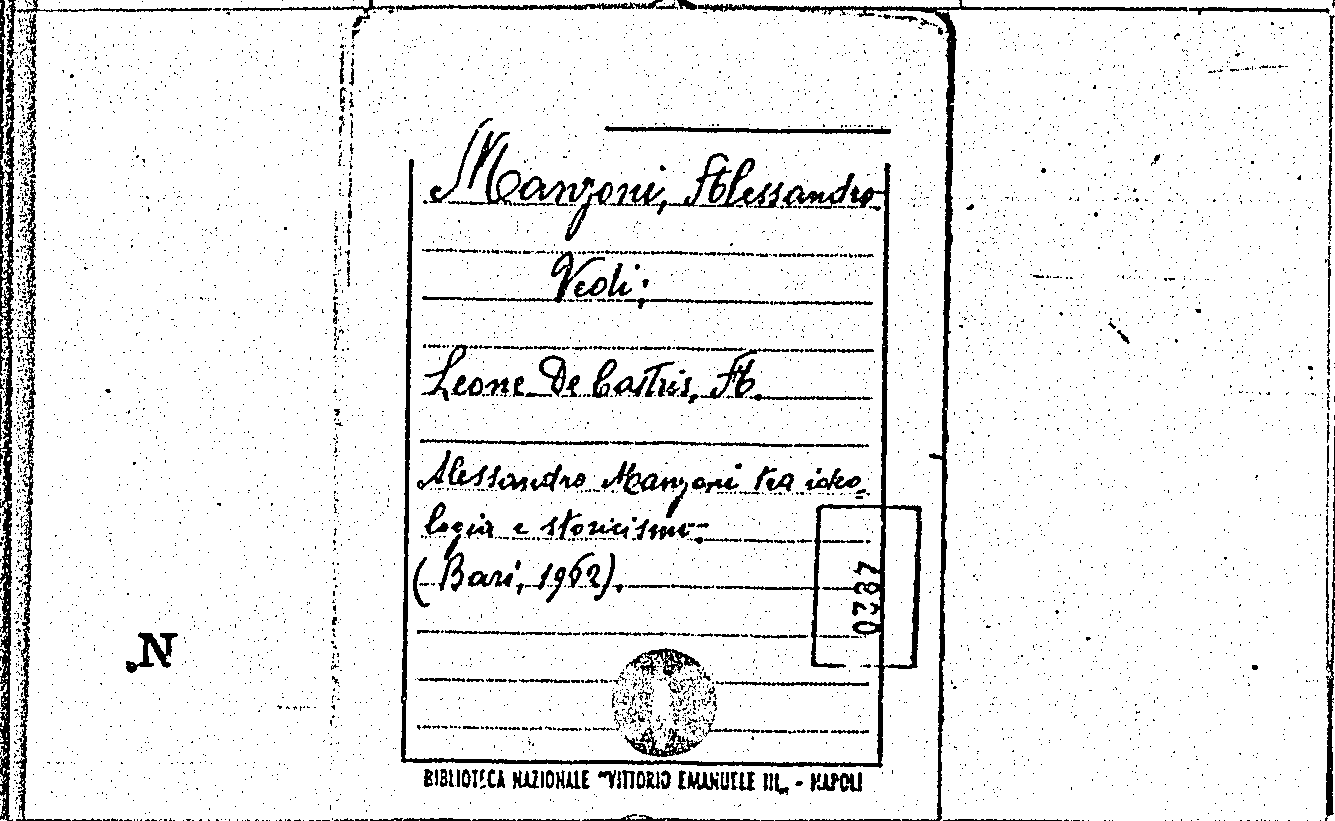 Manzoni, Alessandro
Vedi:
Leone De Castris, A.
Alessandro Manzoni tra ideo=
logia e storicismo.-
(Bari, 1962).
N.
BIBLIOTECA NAZIONALE "VITTORIO EMANUELE III„ - NAPOLI